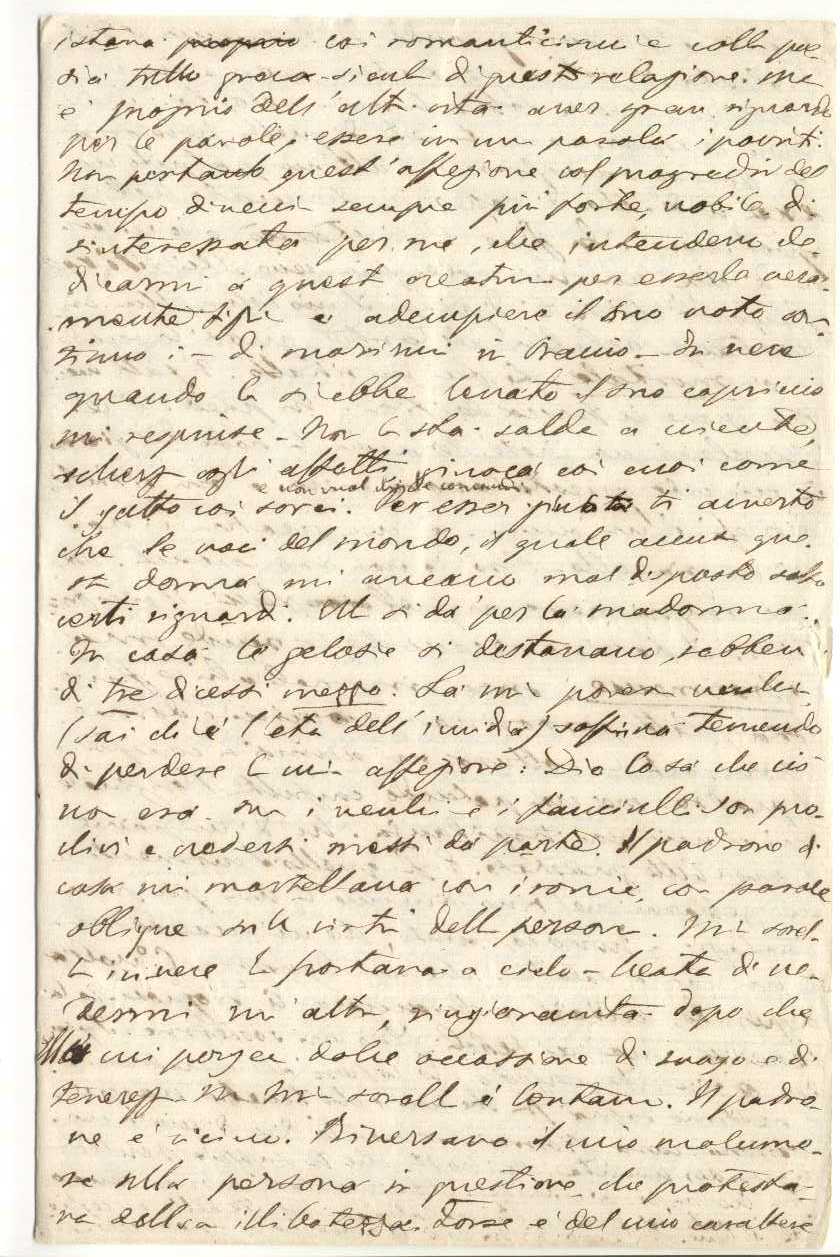 istava proprio coi romanticismi e colla poe-
sia tutta greco-sicula di questa relazione. Ma
è proprio dell'altra vita aver gran riguardo
per le parole, essere in una parola ipocriti.
Non pertanto quest'affezione col progredir del
tempo diveniva sempre più forte, nobile, di-
sinteressata per me, che intendevo de-
dicarmi a quest creatura per esserle vera-
mente e adempiere il suo voto con-
tinuo: – di morirmi in braccio – In vece
quando la si ebbe levato il suo capriccio
mi respinse – Non la sta salda a niente,
scherza cogli affetti, gioca coi cuoi come
e non vuol
il gatto coi sorci. Per esser giusta ti avverto
che le voci del mondo, il quale que-
sta donna, mi aveano mal disposto
certi riguardi. Ella si dà per la madonna.
In casa le gelosie si destavano, sebben
di tre dicessi mezzo. La mia povera vecchia
(sai ch'è l'età dell'invidia) soffriva temendo
di perdere la mia affezione: Dio lo sa che ciò
non era. ma i vecchi e i fanciulli son pro-
clivi a credersi messi da parte. Il padrone di
casa mi martellava con ironie, con parole
oblique sulla virtù della persona. Mia sorel-
la invece la portava a cielo – beata di ve-
dermi un'altra, ringiovanita dopo che
mi porgea dolce occasione di svago e di
tenerezza. Ma mia sorella è lontana. Il padro-
ne è vicino. Riversavo il mio malumo-
re sulla persona in questione, che protesta-
va della illibatezza. Forse è del mio carattere